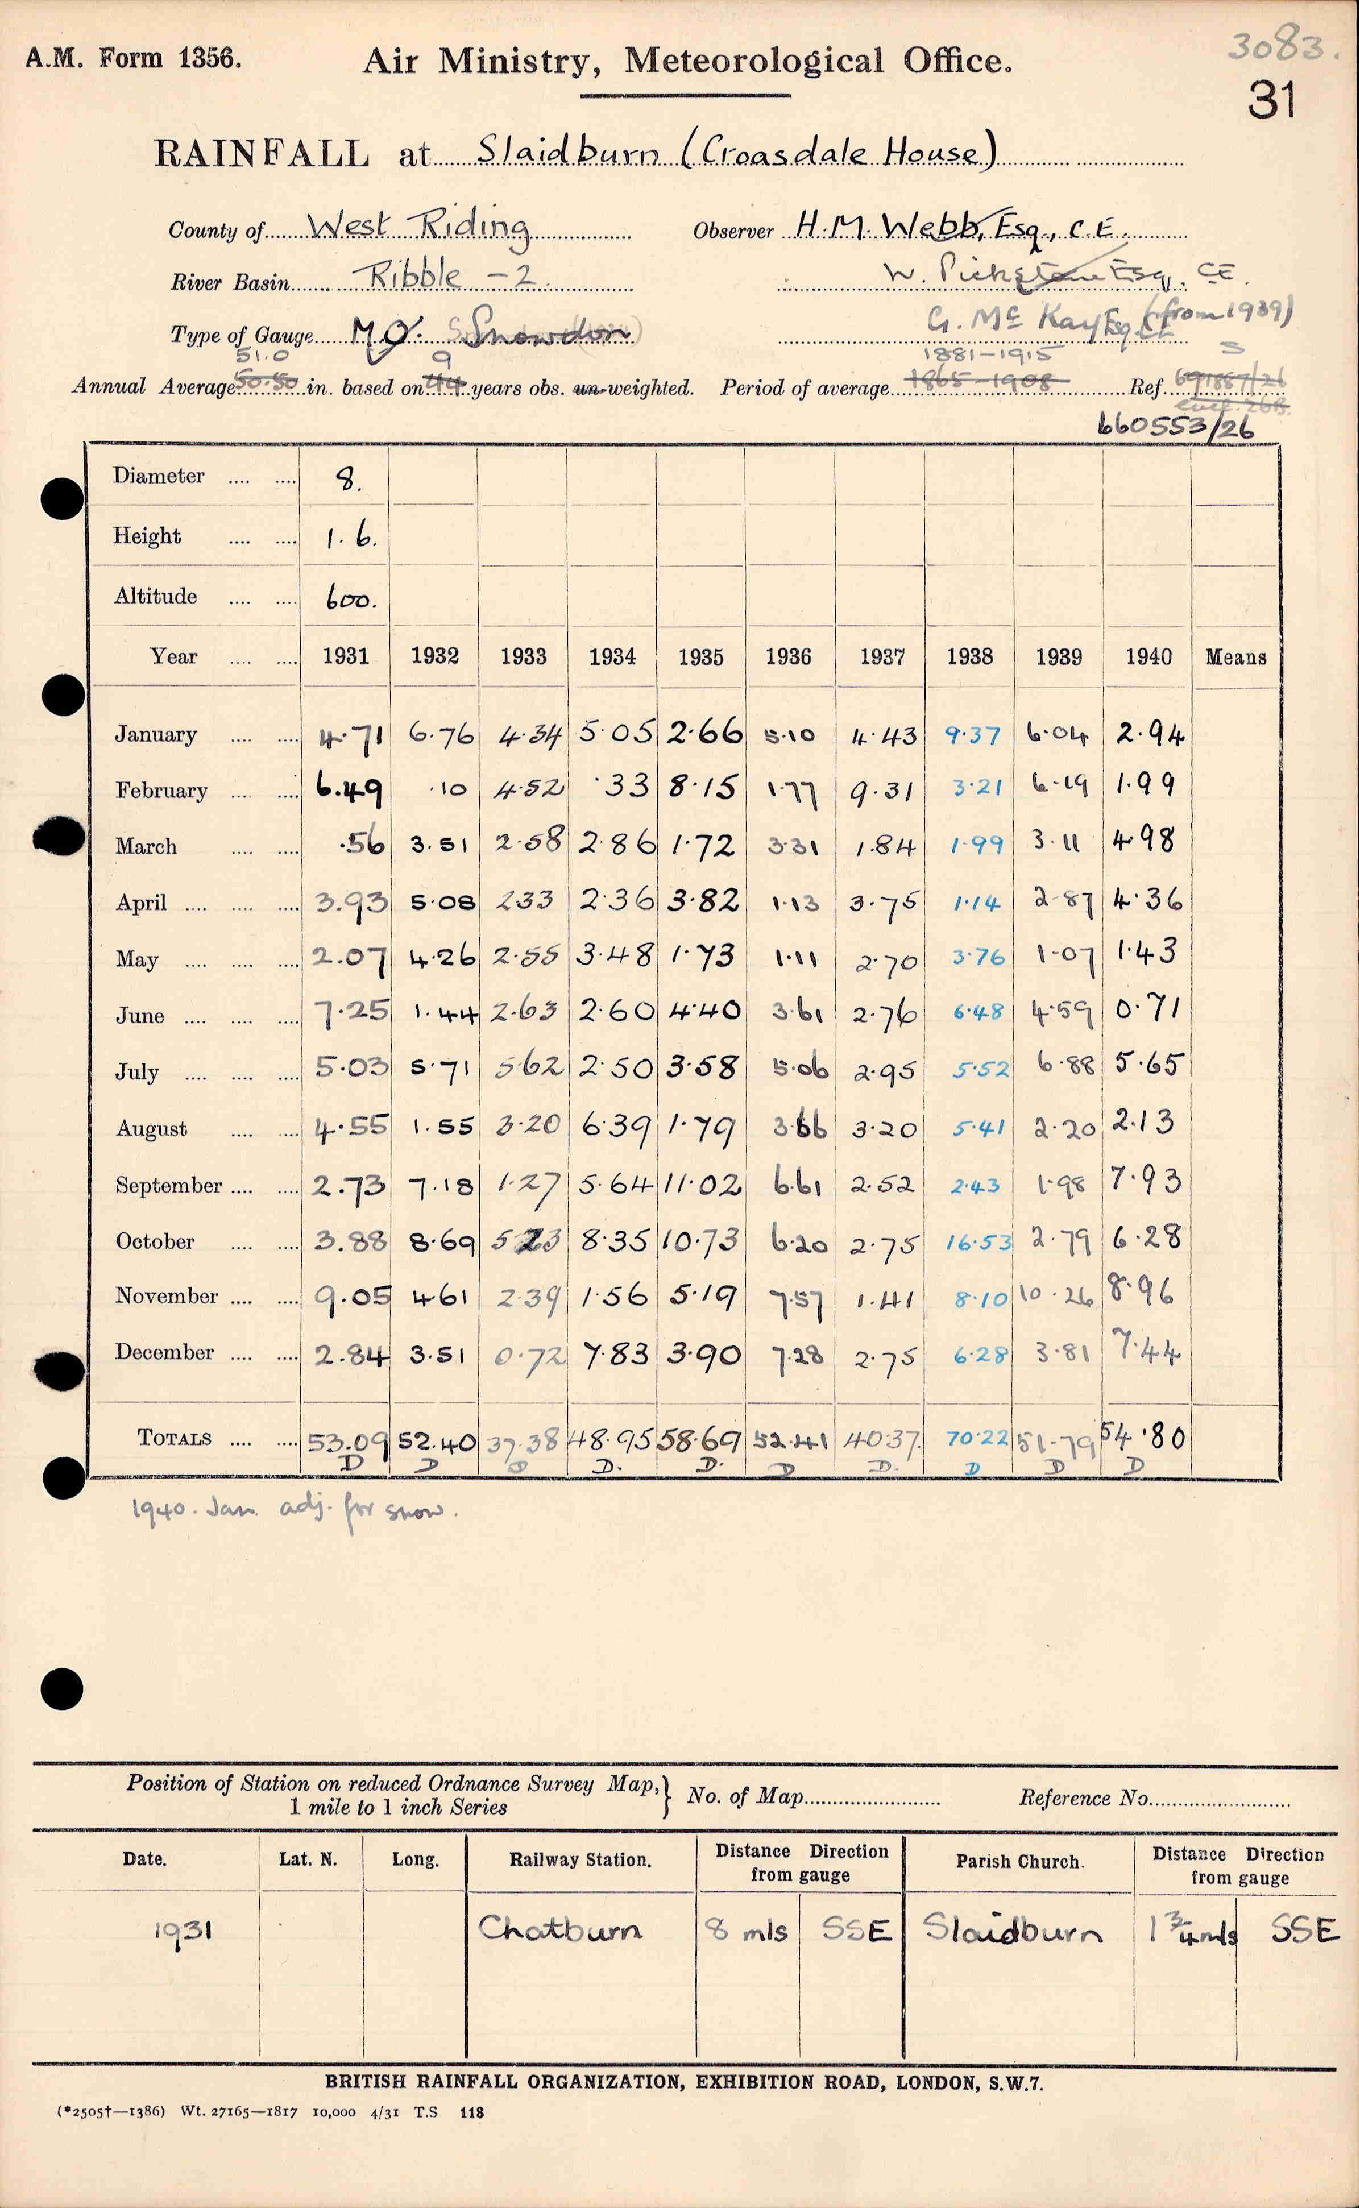 3083.
A.M. Form 1356. Air Ministry, Meteorological Office.
31
RAINFALL at Slaidburn (Croasdale House)
County of West Riding Observer H.M. Webb, Esq., C.E.
River Basin Ribble - 2. W. Pickstone Esq. CE.
Type of Gauge M.O. Snowdon G. McKay Esq. CE (from 1939)
51.0 9 1881-1915 S
Annual Average 50.50 in. based on 44 years obs. un-weighted. Period of average 1865-1908 Ref. 691887/26
encl. 26B.
660553/26
Diameter .... .... 8.
Height .... .... 1.6.
Altitude .... .... 600.
Year .... .... 1931 1932 1933 1934 1935 1936 1937 1938 1939 1940 Means
January .... .... 4.71 6.76 4.34 5.05 2.66 5.10 4.43 9.37 6.04 2.94
February .... .... 6.49 .10 4.52 .33 8.15 1.77 9.31 3.21 6.19 1.99
March .... .... .56 3.51 2.58 2.86 1.72 3.31 1.84 1.99 3.11 4.98
April .... .... .... 3.93 5.08 2.33 2.36 3.82 1.13 3.75 1.14 2.87 4.36
May .... .... .... 2.07 4.26 2.55 3.48 1.73 1.11 2.70 3.76 1.07 1.43
June .... .... .... 7.25 1.44 2.63 2.60 4.40 3.61 2.76 6.48 4.59 0.71
July .... .... .... 5.03 5.71 5.62 2.50 3.58 5.06 2.95 5.52 6.88 5.65
August .... .... 4.55 1.55 3.20 6.39 1.79 3.66 3.20 5.41 2.20 2.13
September .... .... 2.73 7.18 1.27 5.64 11.02 6.61 2.52 2.43 1.98 7.93
October .... .... 3.88 8.69 5.23 8.35 10.73 6.20 2.75 16.53 2.79 6.28
November .... .... 9.05 4.61 2.39 1.56 5.19 7.57 1.41 8.10 10.26 8.96
December .... .... 2.84 3.51 0.72 7.83 3.90 7.28 2.75 6.28 3.81 7.44
TOTALS .... .... 53.09 52.40 37.38 48.95 58.69 52.41 40.37. 70.22 51.79 54.80
D D D D. D. D D. D D D
1940. Jan. adj. for snow.
Position of Station on reduced Ordnance Survey Map, } No. of Map Reference No.
1 mile to 1 inch Series
Date. Lat. N. Long. Railway Station. Distance Direction from gauge Parish Church. Distance Direction from gauge
1931 Chatburn 8 mls SSE Slaidburn 1 3/4 mls SSE
BRITISH RAINFALL ORGANIZATION, EXHIBITION ROAD, LONDON, S.W.7.
(*2505†—1386) Wt. 27165—1817 10,000 4/31 T.S 118